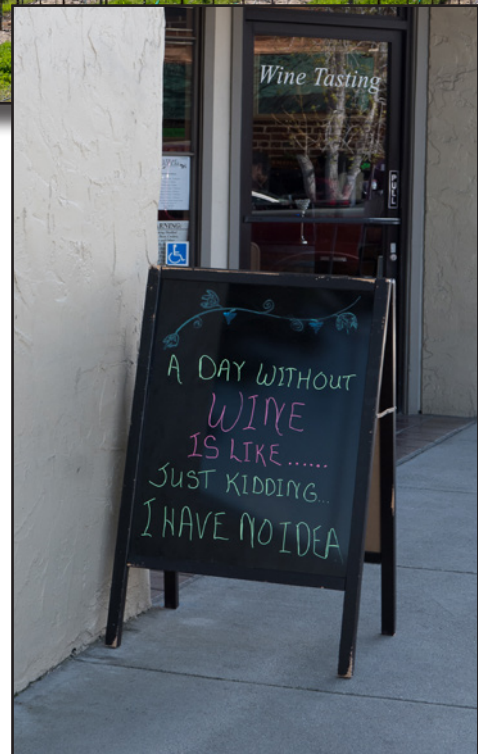 Wine Tasting
PULL
A DAY WITHOUT
WINE
IS LIKE......
JUST KIDDING...
I HAVE NO IDEA